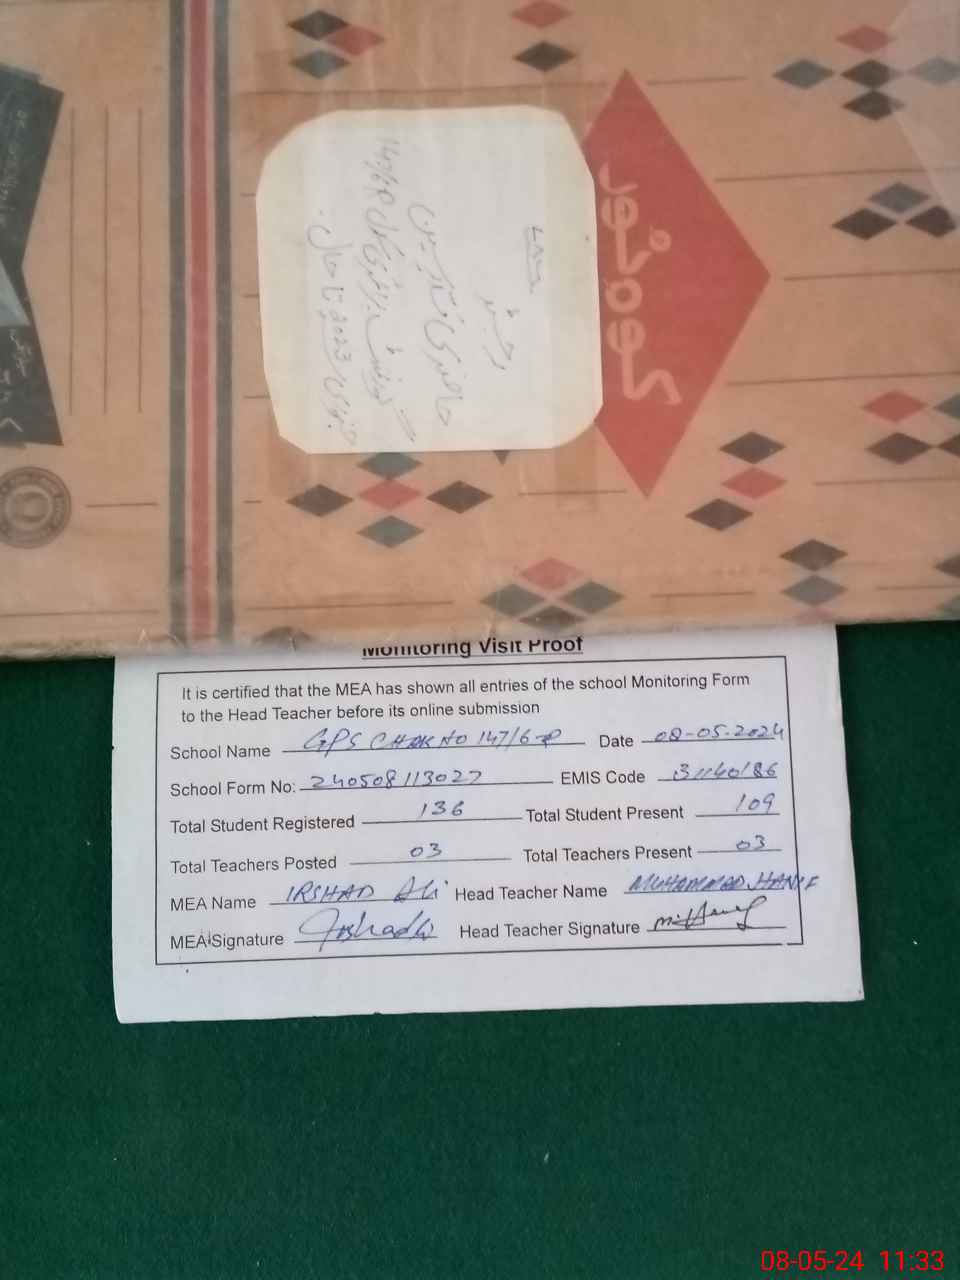 کوہ نور
رجسٹر
حاضری
Monitoring Visit Proof
It is certified that the MEA has shown all entries of the school Monitoring Form
to the Head Teacher before its online submission
School Name GPS CHAK NO 147/6-R Date 08-05-2024
School Form No: 240508113027 EMIS Code 31140186
Total Student Registered 136 Total Student Present 109
Total Teachers Posted 03 Total Teachers Present 03
MEA Name IRSHAD Ali Head Teacher Name MUHAMMAD HANIF
MEA Signature Irshad Ali Head Teacher Signature M. Hanif
08-05-24 11:33